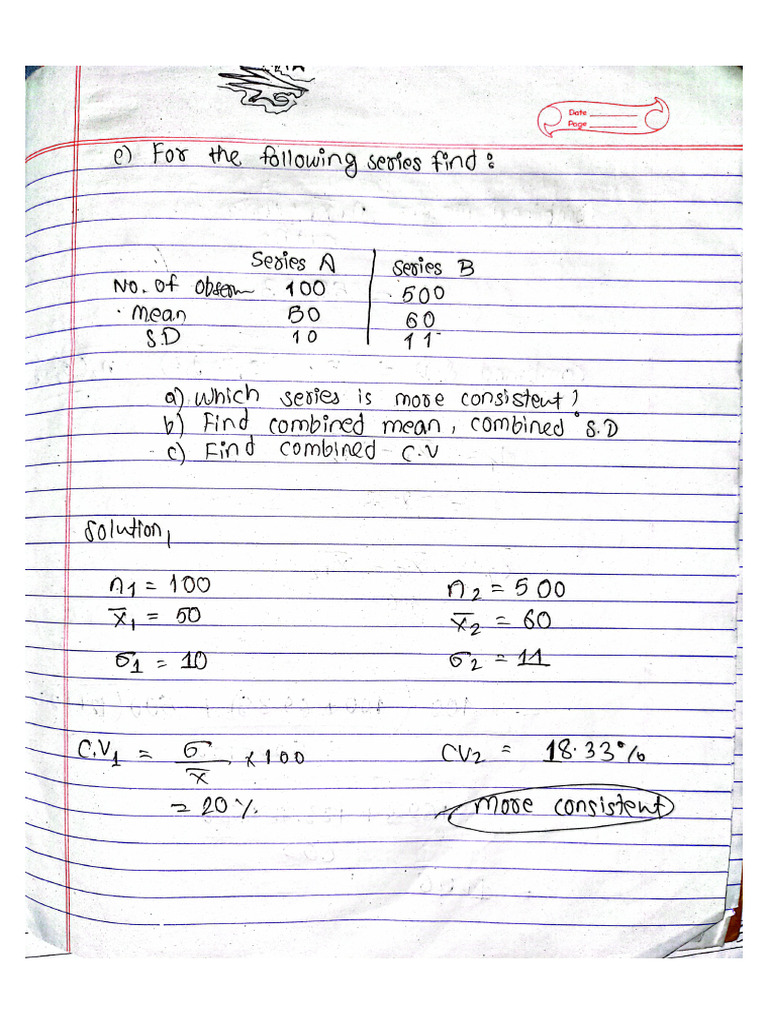 Date
Page
e) For the following series find:
Series A Series B
No. of Obsern 100 500
Mean 50 60
S.D 10 11
a) Which series is more consistent?
b) Find combined mean, combined S.D
c) Find combined C.V
Solution,
n1 = 100 n2 = 500
x̅1 = 50 x̅2 = 60
σ1 = 10 σ2 = 11
C.V1 = σ/x̅ × 100 CV2 = 18.33%
= 20% More consistent